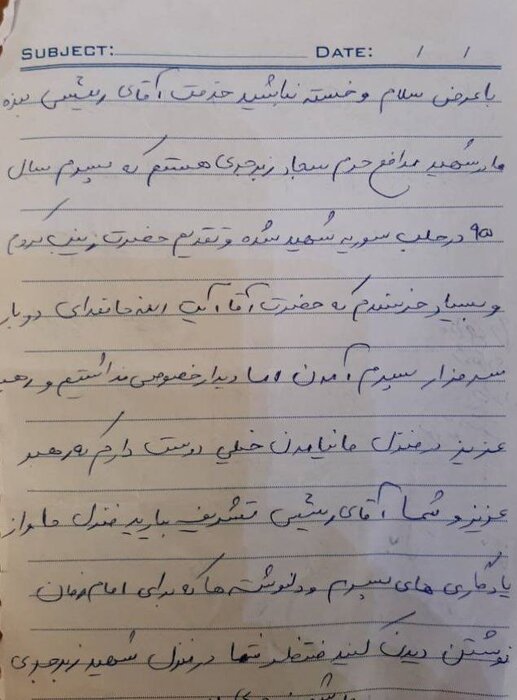 SUBJECT: DATE: / /
با عرض سلام و خسته نباشید خدمت آقای رئیسی بنده
مادر شهید مدافع حرم سجاد زبرجدی هستم که پسرم سال
95 در حلب سوریه شهید شده و تقدیم حضرت زینب کردم
و بسیار خرسندم که حضرت آقا آیت الله خامنه‌ای دو بار
سر مزار پسرم آمدن اما دیدار خصوصی نداشتیم و رهبر
عزیز در منزل ما نیامدن خیلی دوست دارم که رهبر
عزیز و شما آقای رئیسی تشریف بیارید منزل ما و از
یادگاری های پسرم و دلنوشته ها که برای امام زمان
نوشتن دیدن کنید منتظر شما در منزل شهید زبرجدی